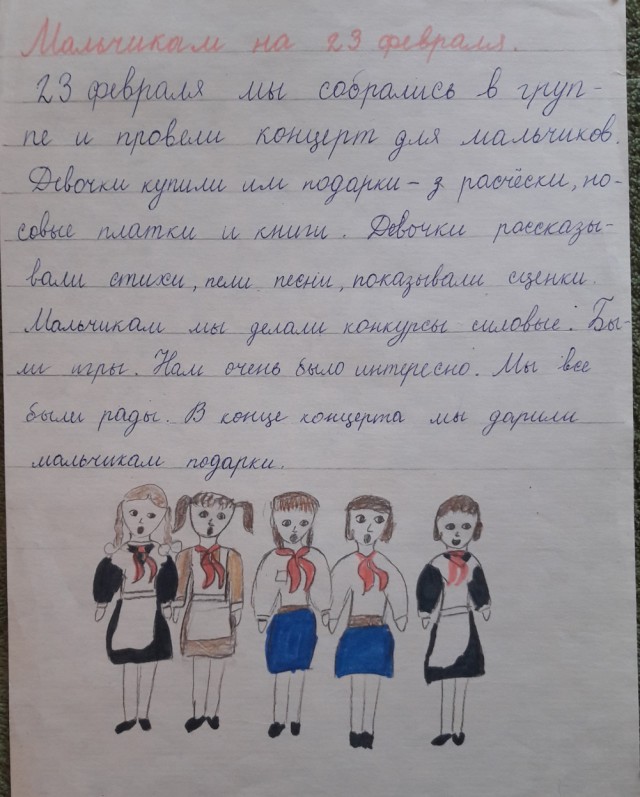 Мальчикам на 23 февраля.
23 февраля мы собрались в груп-
пе и провели концерт для мальчиков.
Девочки купили им подарки – расчёски, но-
совые платки и книги. Девочки рассказы-
вали стихи, пели песни, показывали сценки.
Мальчикам мы делали конкурсы силовые. Бы-
ли игры. Нам очень было интересно. Мы все
были рады. В конце концерта мы дарили
мальчикам подарки.